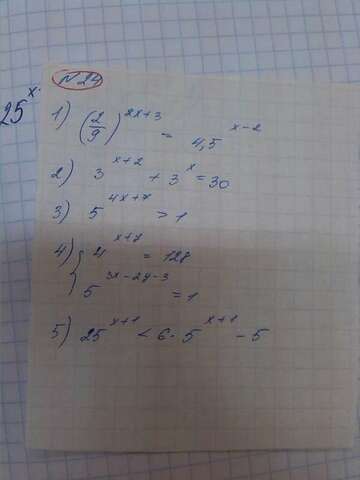 25^x
№ 24
1) (2/9)^{2x+3} = 4,5^{x-2}
2) 3^{x+2} + 3^x = 30
3) 5^{4x+7} > 1
4) { 4^{x+y} = 128
5^{3x-2y-3} = 1
5) 25^{x+1} < 6 · 5^{x+1} - 5